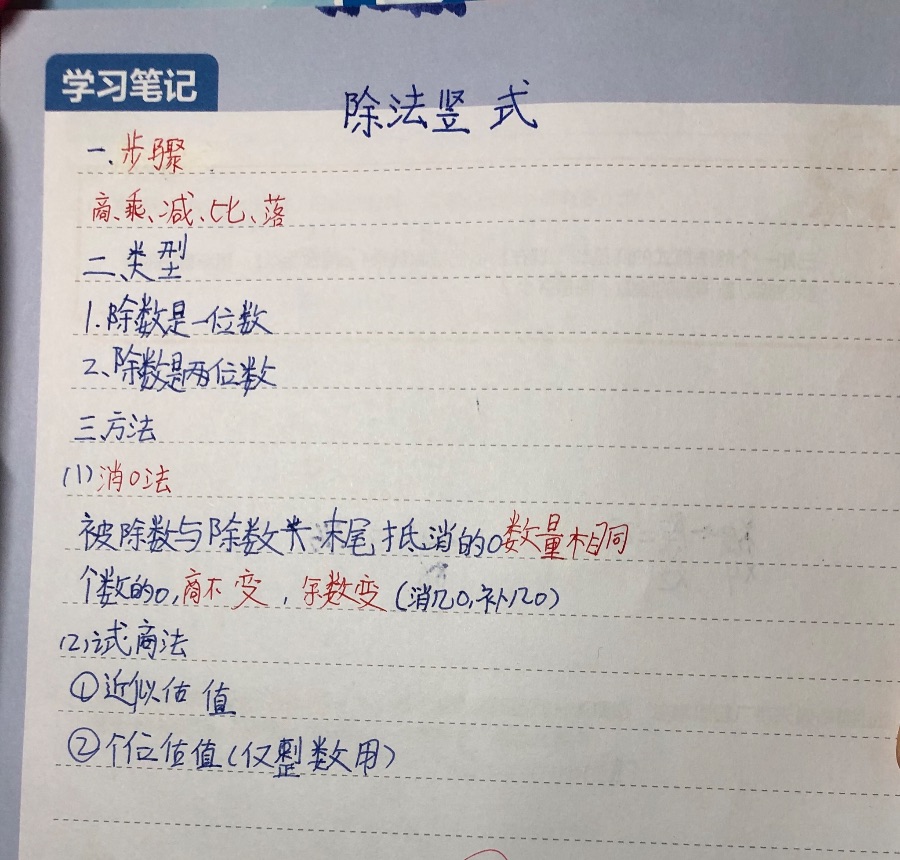 学习笔记
除法竖式
一、步骤
商、乘、减、比、落
二、类型
1.除数是一位数
2、除数是两位数
三、方法
(1)消0法
被除数与除数末尾抵消的0数量相同
个数的0,商不变,余数变(消几0,补几0)
(2)试商法
①近似估值
②个位估值(仅整数用)